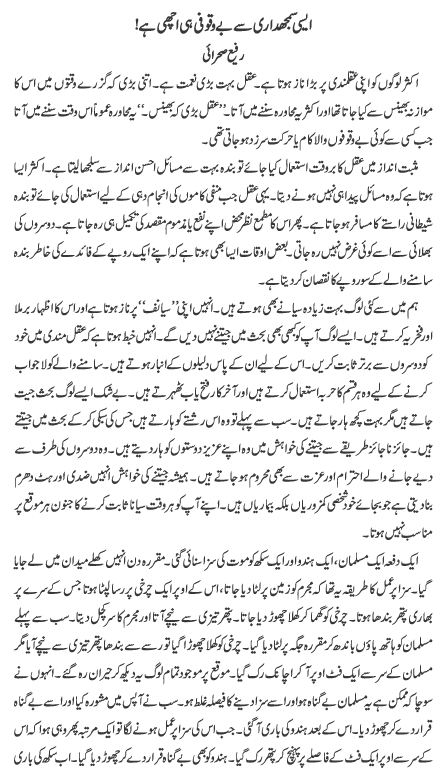 ایسی سمجھداری سے بے وقوفی ہی اچھی ہے!
رفیع صحرائی
اکثر لوگوں کو اپنی عقلمندی پر بڑا ناز ہوتا ہے۔ عقل بہت بڑی نعمت ہے۔ اتنی بڑی کہ گزرے وقتوں میں اس کا
موازنہ بھینس سے کیا جاتا تھا اور اکثر یہ محاورہ سننے میں آتا۔ ”عقل بڑی کہ بھینس۔“ یہ محاورہ عموماً اس وقت سننے میں آتا
جب کسی سے کوئی بے وقوفوں والا کام یا حرکت سرزد ہو جاتی تھی۔
مثبت انداز میں عقل کا بروقت استعمال کیا جائے تو بندہ بہت سے مسائل احسن انداز سے سلجھا لیتا ہے۔ اکثر ایسا
ہوتا ہے کہ وہ مسائل پیدا ہی نہیں ہونے دیتا۔ یہی عقل جب منفی کاموں کی انجام دہی کے لیے استعمال کی جائے تو بندہ
شیطانی راستے کا مسافر ہو جاتا ہے۔ پھر اس کا مطمع نظر محض اپنے نفع یا مذموم مقصد کی تکمیل ہی رہ جاتا ہے۔ دوسروں کی
بھلائی سے اسے کوئی غرض نہیں رہ جاتی۔ بعض اوقات ایسا بھی ہوتا ہے کہ اپنے ایک روپے کے فائدے کی خاطر بندہ
سامنے والے کے سو روپے کا نقصان کر دیتا ہے۔
ہم میں سے کئی لوگ بہت زیادہ سیانے بھی ہوتے ہیں۔ انہیں اپنی ”سیانف“ پر ناز ہوتا ہے اور اس کا اظہار برملا
اور فخریہ کرتے ہیں۔ ایسے لوگ آپ کو کبھی بھی بحث میں جیتنے نہیں دیں گے۔ انہیں خبط ہوتا ہے کہ عقل مندی میں خود
کو دوسروں سے برتر ثابت کریں۔ اس کے لیے ان کے پاس دلیلوں کے انبار ہوتے ہیں۔ سامنے والے کو لاجواب
کرنے کے لیے وہ ہر قسم کا حربہ استعمال کرتے ہیں اور آخرکار فتح یاب ٹھہرتے ہیں۔ بے شک ایسے لوگ بحث جیت
جاتے ہیں مگر بہت کچھ ہار جاتے ہیں۔ سب سے پہلے تو وہ اس رشتے کو ہارتے ہیں جس کی سبکی کر کے بحث میں جیتتے
ہیں۔ جائز ناجائز طریقے سے جیتنے کی خواہش میں وہ اپنے عزیز دوستوں کو ہار دیتے ہیں۔ وہ دوسروں کی طرف سے
دیے جانے والے احترام اور عزت سے بھی محروم ہو جاتے ہیں۔ ہمیشہ جیتنے کی خواہش انہیں ضدی اور ہٹ دھرم
بنا دیتی ہے جو بجائے خود شخصی کمزوریاں بلکہ بیماریاں ہیں۔ اپنے آپ کو ہر وقت سیانا ثابت کرنے کا جنون ہر موقع پر
مناسب نہیں ہوتا۔
ایک دفعہ ایک مسلمان، ایک ہندو اور ایک سکھ کو موت کی سزا سنائی گئی۔ مقررہ دن انہیں کھلے میدان میں لے جایا
گیا۔ سزا پر عمل کا طریقہ یہ تھا کہ مجرم کو زمین پر لٹا دیا جاتا، اس کے اوپر ایک چرخی پر رسا لپٹا ہوتا جس کے سرے پر
بھاری پتھر بندھا ہوتا۔ چرخی کو گھما کر کھلا چھوڑ دیا جاتا۔ پتھر تیزی سے نیچے آتا اور مجرم کا سر کچل دیتا۔ سب سے پہلے
مسلمان کو ہاتھ پاؤں باندھ کر مقررہ جگہ پر لٹا دیا گیا۔ چرخی کو کھلا چھوڑا گیا تو رسے سے بندھا پتھر تیزی سے نیچے آیا مگر
مسلمان کے سر سے ایک فٹ اوپر آ کر اچانک رک گیا۔ موقع پر موجود تمام لوگ یہ دیکھ کر حیران رہ گئے۔ انہوں نے
سوچا کہ ممکن ہے یہ مسلمان بے گناہ ہو اور اسے سزا دینے کا فیصلہ غلط ہو۔ سب نے آپس میں مشورہ کیا اور اسے بے گناہ
قرار دے کر چھوڑ دیا۔ اس کے بعد ہندو کی باری آ گئی۔ جب اس کی سزا پر عمل ہونے لگا تو ایک مرتبہ پھر وہی ہوا کہ اس
کے سر سے اوپر ایک فٹ کے فاصلے پر پہنچ کر پتھر رک گیا۔ ہندو کو بھی بے گناہ قرار دے کر چھوڑ دیا گیا۔ اب سکھ کی باری